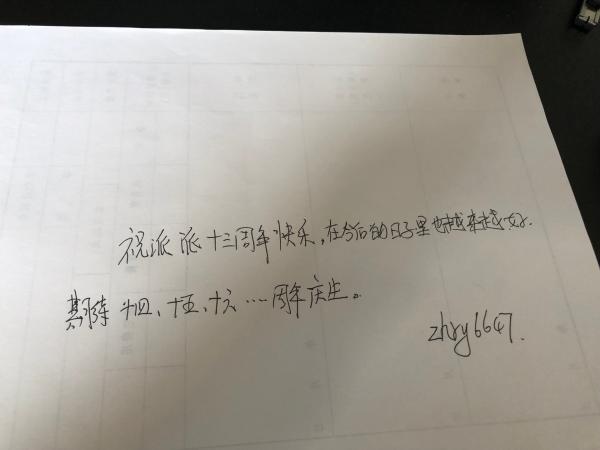 祝派派十三周年快乐,在今后的日子里也越来越好.
期待十四、十五、十六…周年庆生。
zhry6647.